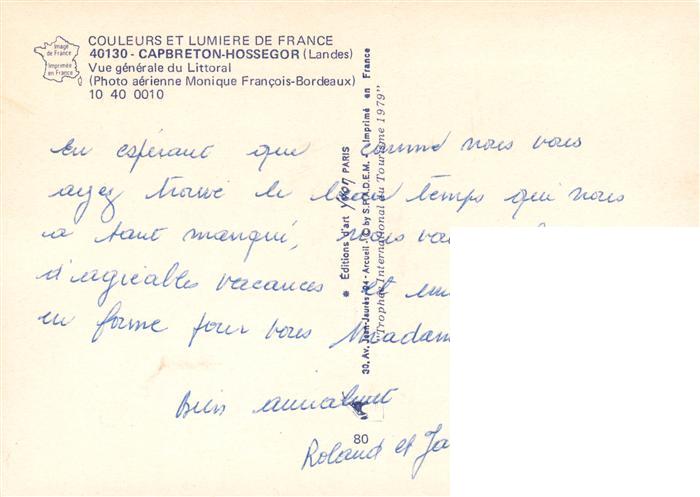 Image
de France
Imprimée
en France
COULEURS ET LUMIERE DE FRANCE
40130 - CAPBRETON-HOSSEGOR (Landes)
Vue générale du Littoral
(Photo aérienne Monique François-Bordeaux)
10 40 0010
En espérant que comme nous vous
ayez trouvé le beau temps qui nous
a tant manqué, nous
d'agréables vacances et
en forme pour vous Madam
Bien amicalement
Roland et Ja
Editions d'art yvon PARIS
30, Av. Jean-Jaurès, 94 - Arcueil - © by S.P.A.D.E.M. - Imprimé en France
"Trophée International du Tourisme 1979"
80